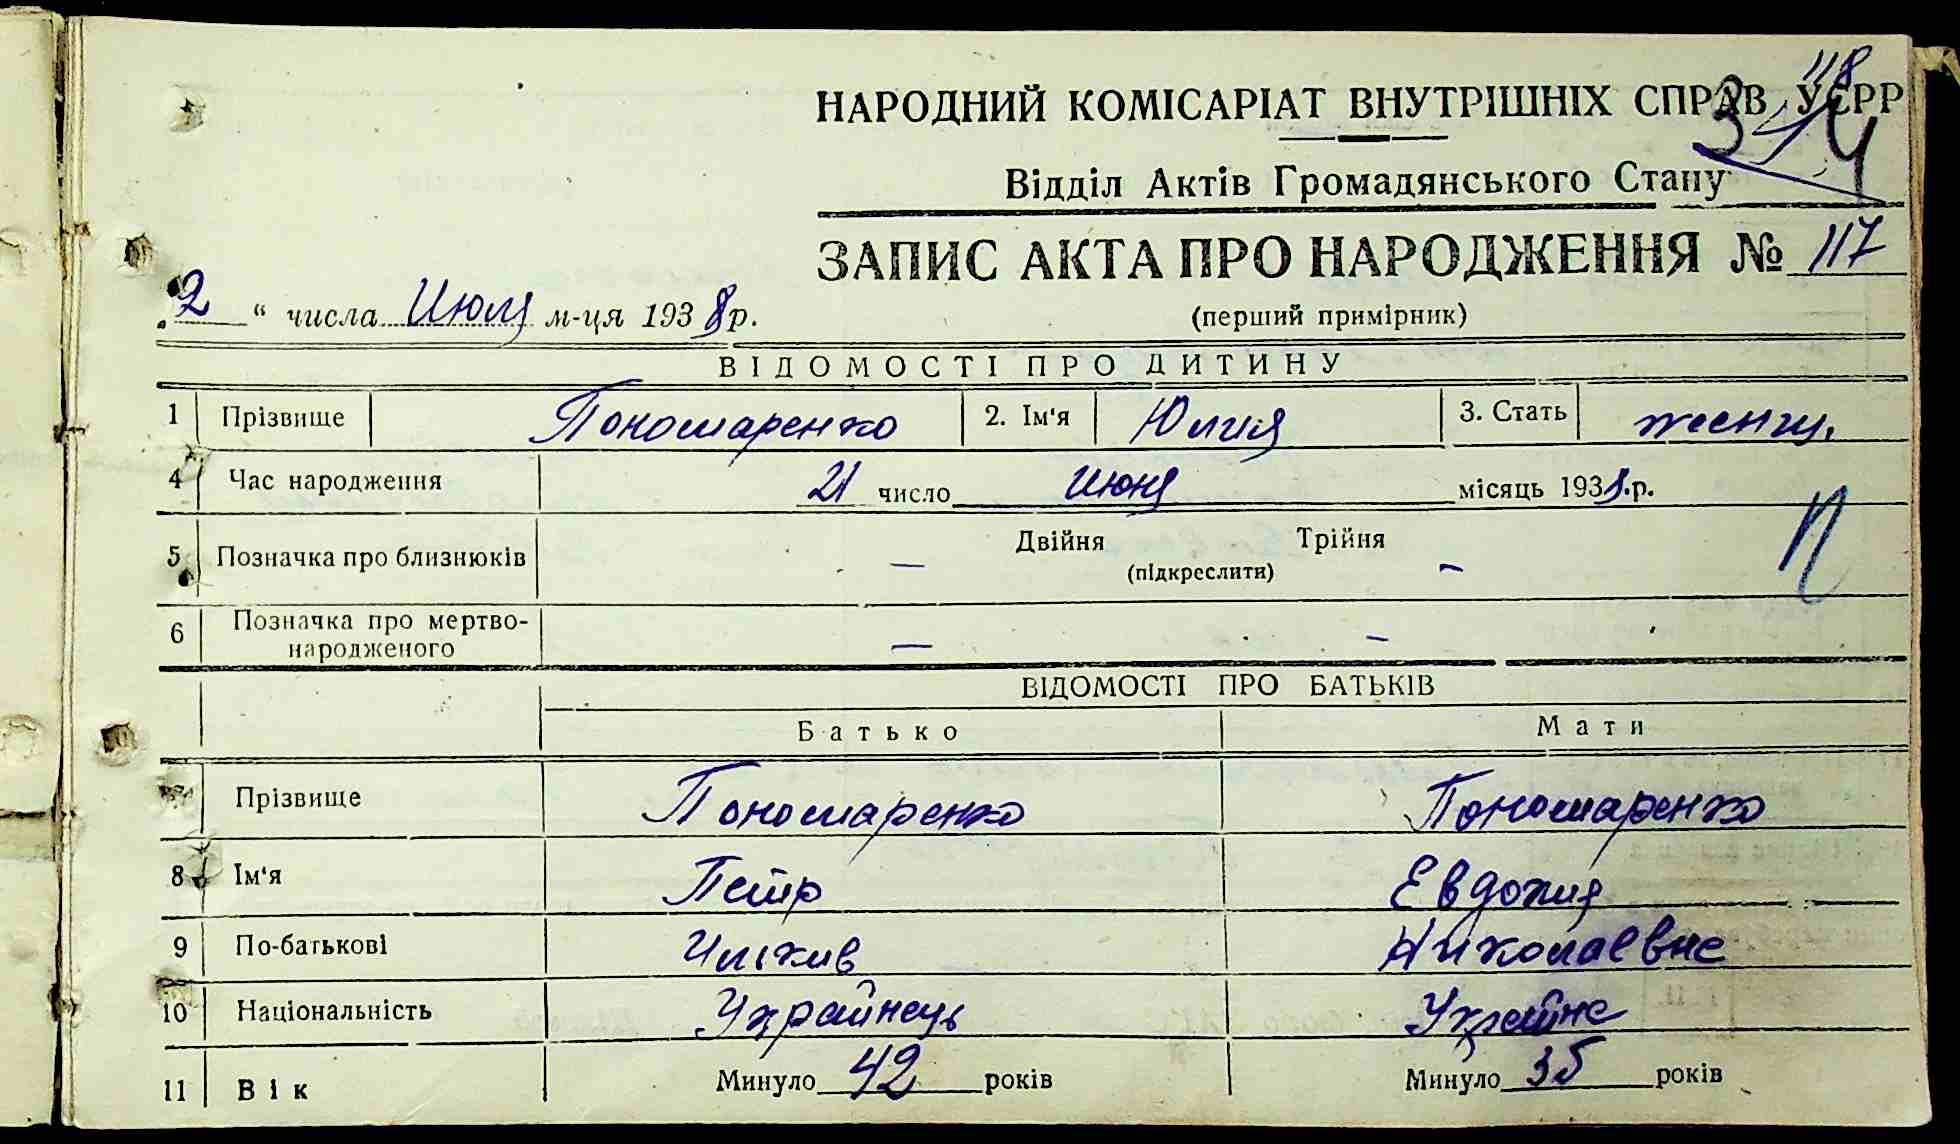 118
НАРОДНИЙ КОМІСАРІАТ ВНУТРІШНІХ СПРАВ УСРР
Відділ Актів Громадянського Стану
ЗАПИС АКТА ПРО НАРОДЖЕННЯ № 117
„2“ числа Июля м-ця 1938 р.
(перший примірник)
ВІДОМОСТІ ПРО ДИТИНУ
1 Прізвище Пономаренко 2. Ім'я Юлия 3. Стать
4 Час народження 21 число Июня місяць 1938 р.
5 Позначка про близнюків — Двійня Трійня —
(підкреслити)
6 Позначка про мертво-
народженого — —
ВІДОМОСТІ ПРО БАТЬКІВ
Батько Мати
Прізвище Пономаренко Пономаренко
8 Ім'я Петр Евдокия
9 По-батькові Николаевне
10 Національність Українець
11 Вік Минуло 42 років Минуло 35 років